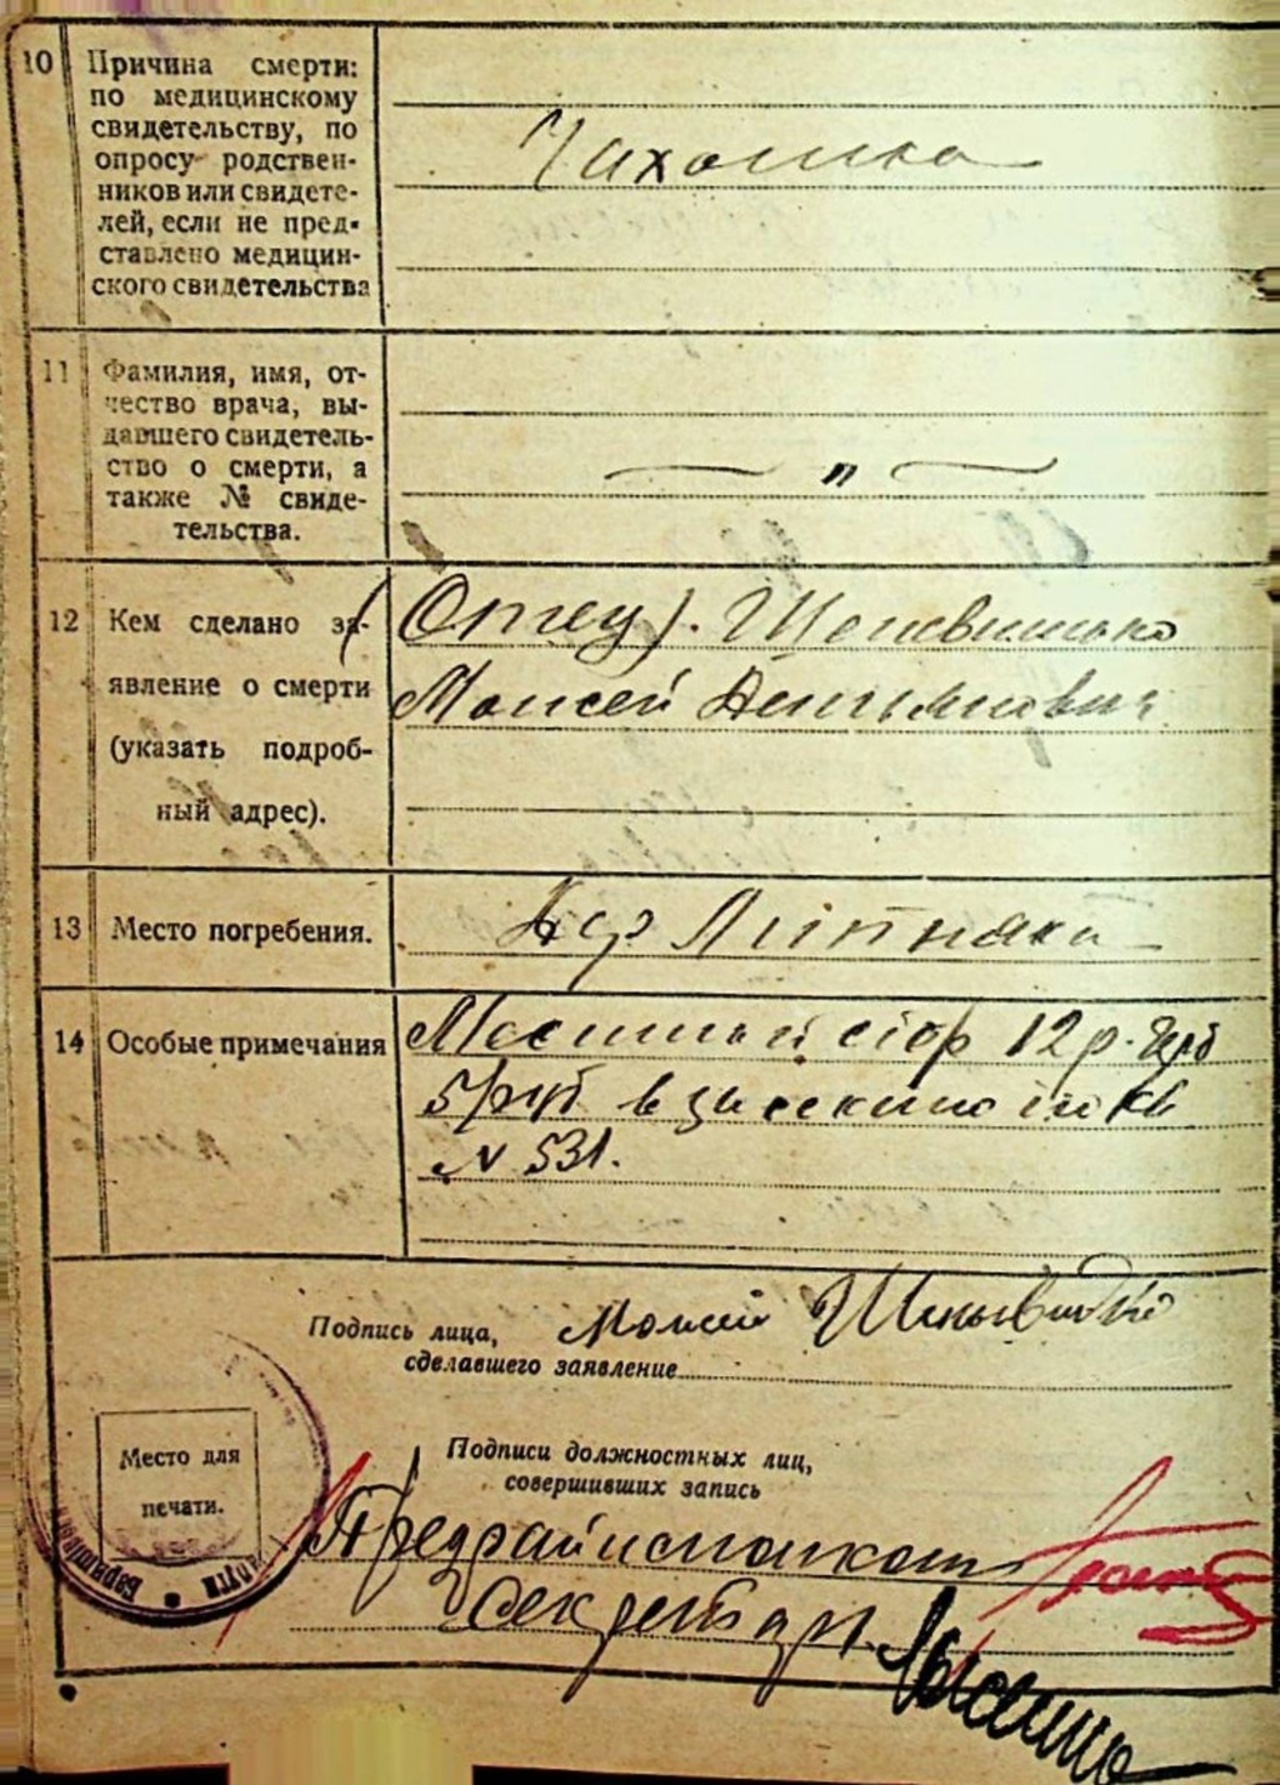 10 Причина смерти:
по медицинскому
свидетельству, по
опросу родствен-
ников или свидете-
лей, если не пред-
ставлено медицин-
ского свидетельства
Чахотка
11 Фамилия, имя, от-
чество врача, вы-
давшего свидетель-
ство о смерти, а
также № свиде-
тельства.
— " —
12 Кем сделано за-
явление о смерти
(указать подроб-
ный адрес).
(Отец).
Моисей
13 Место погребения.
Дер Липняки
14 Особые примечания
Местный сбор 12 р.
взыскано по кв
N 531.
Подпись лица,
сделавшего заявление
Моисей
Место для
печати.
Подписи должностных лиц,
совершивших запись
Предрайисполкома
Секретарь